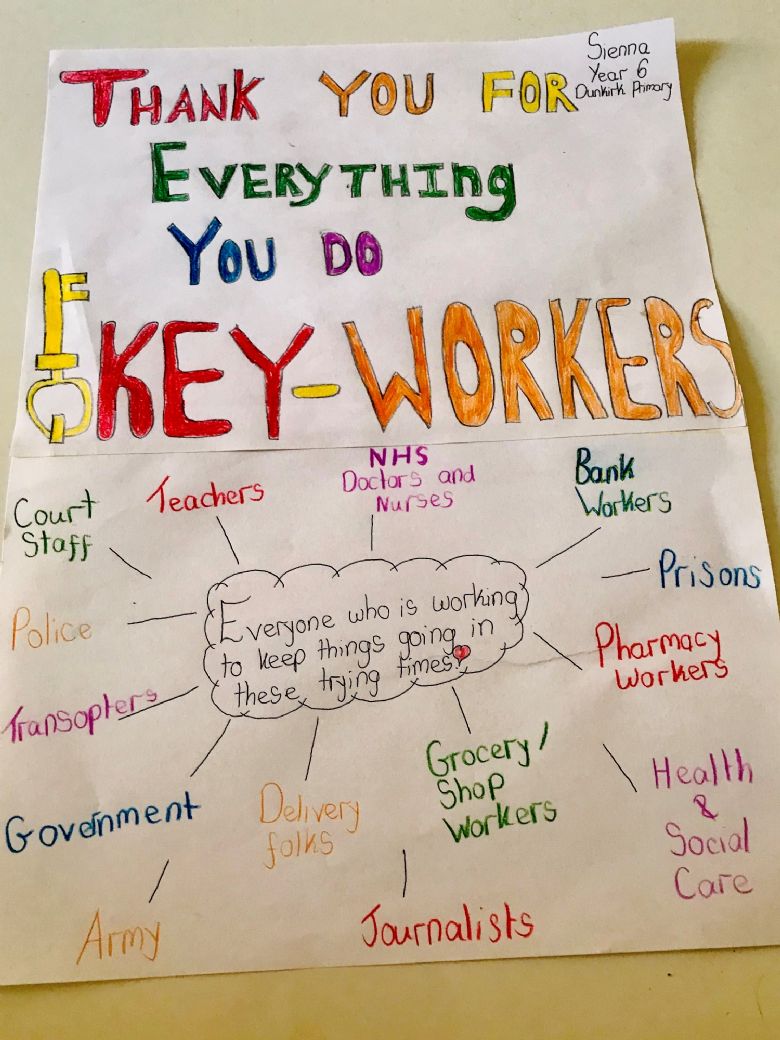 Sienna
Year 6
Dunkirk Primary
THANK YOU FOR
EVERYTHINg
YOU DO
KEY-WORKERS
NHS
Doctors and
Nurses
Teachers
Court
Staff
Bank
Workers
Prisons
Police
Everyone who is working
to keep things going in
these trying times!
Pharmacy
workers
Transopters
Government
Delivery
folks
Grocery/
Shop
Workers
Health
&
Social
Care
Army
Journalists